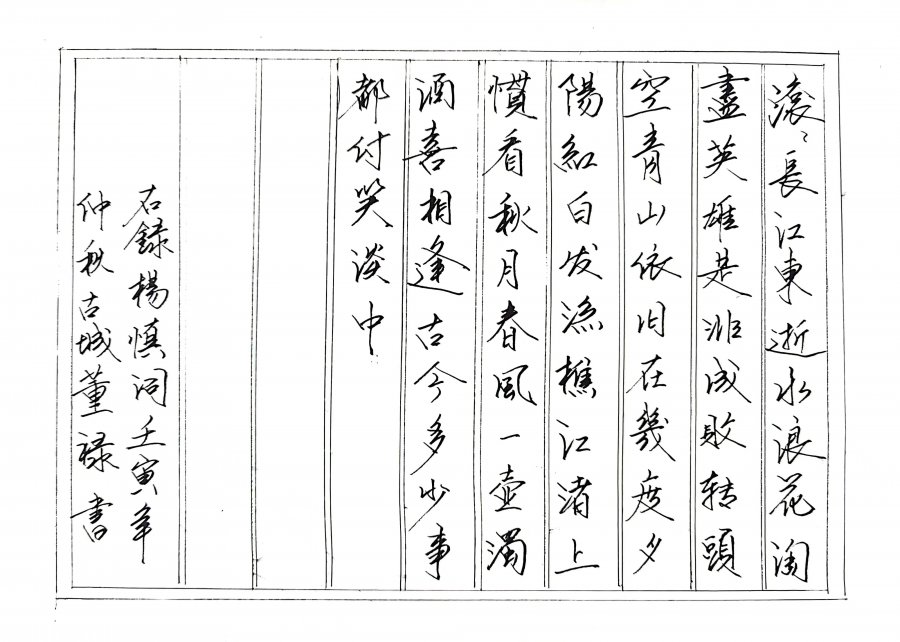 滾〻長江東逝水浪花淘
盡英雄是非成敗转頭
空青山依旧在幾度夕
陽紅白发漁樵江渚上
慣看秋月春風一壶濁
酒喜相逢古今多少事
都付笑淡中
右録楊慎词壬寅年
仲秋古城董禄書